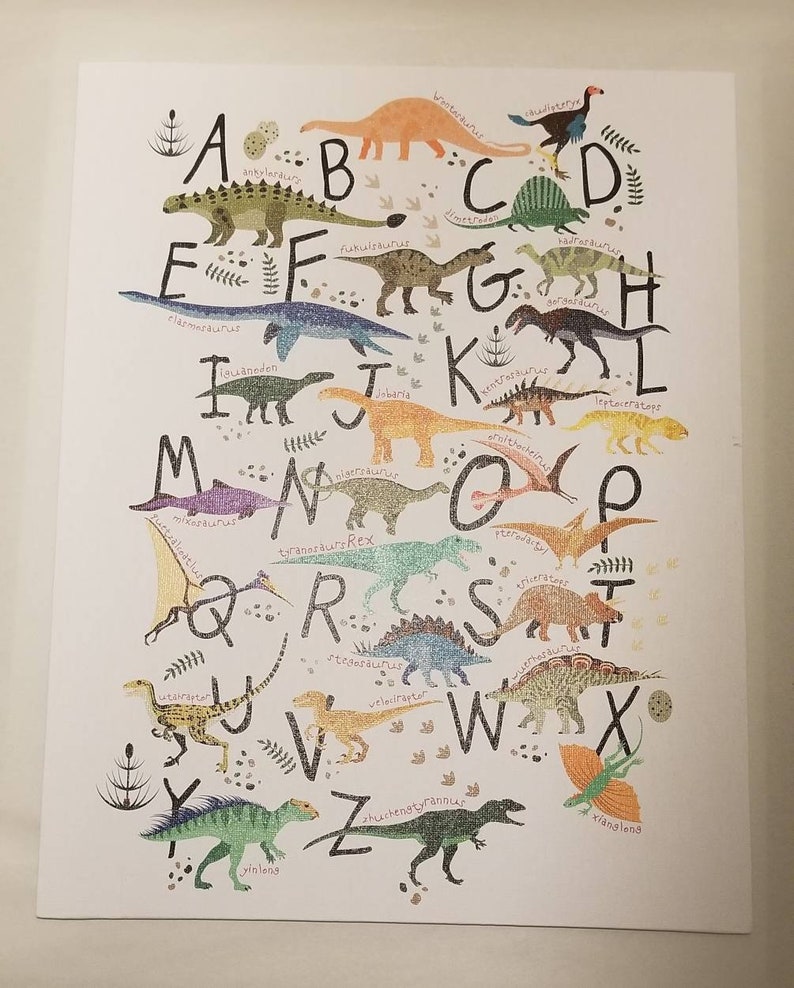 A
ankylosaurs
B
brontosaurus
C
caudipteryx
D
dimetrodon
E
elasmosaurus
F
fukuisaurus
G
gorgosaurus
H
hadrosaurus
I
iguanodon
J
jobaria
K
kentrosaurus
L
leptoceratops
M
mixosaurus
N
nigersaurus
O
ornithocheirus
P
pterodactyl
Q
quetzalcoatlus
R
tyranosaurs Rex
S
stegosaurus
T
triceratops
U
utahraptor
V
velociraptor
W
wuerhosaurus
X
xianglong
Y
yinlong
Z
zhuchengtyrannus